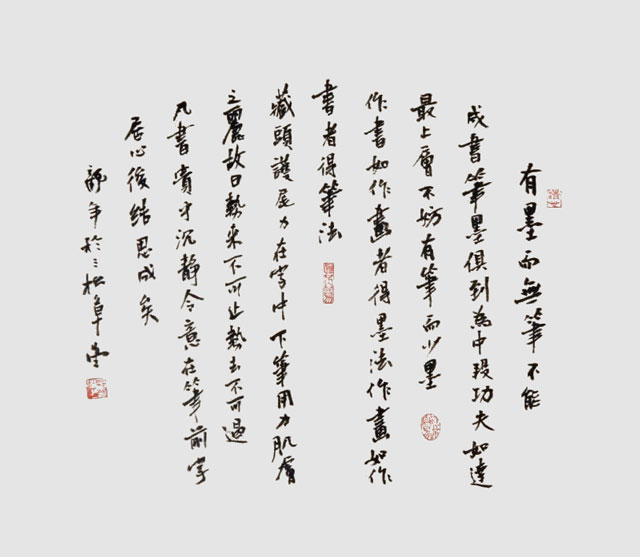 有墨而無筆不能
成書筆墨俱到為中段功夫如達
最上層不妨有筆而少墨
作書如作畫者得墨法作畫如作
書者得筆法
藏頭護尾力在字中下筆用力肌膚
之麗故曰勢来不可止勢去不可遏
凡書貴乎沉静令意在筆前字
居心後結思成矣
於三松草堂